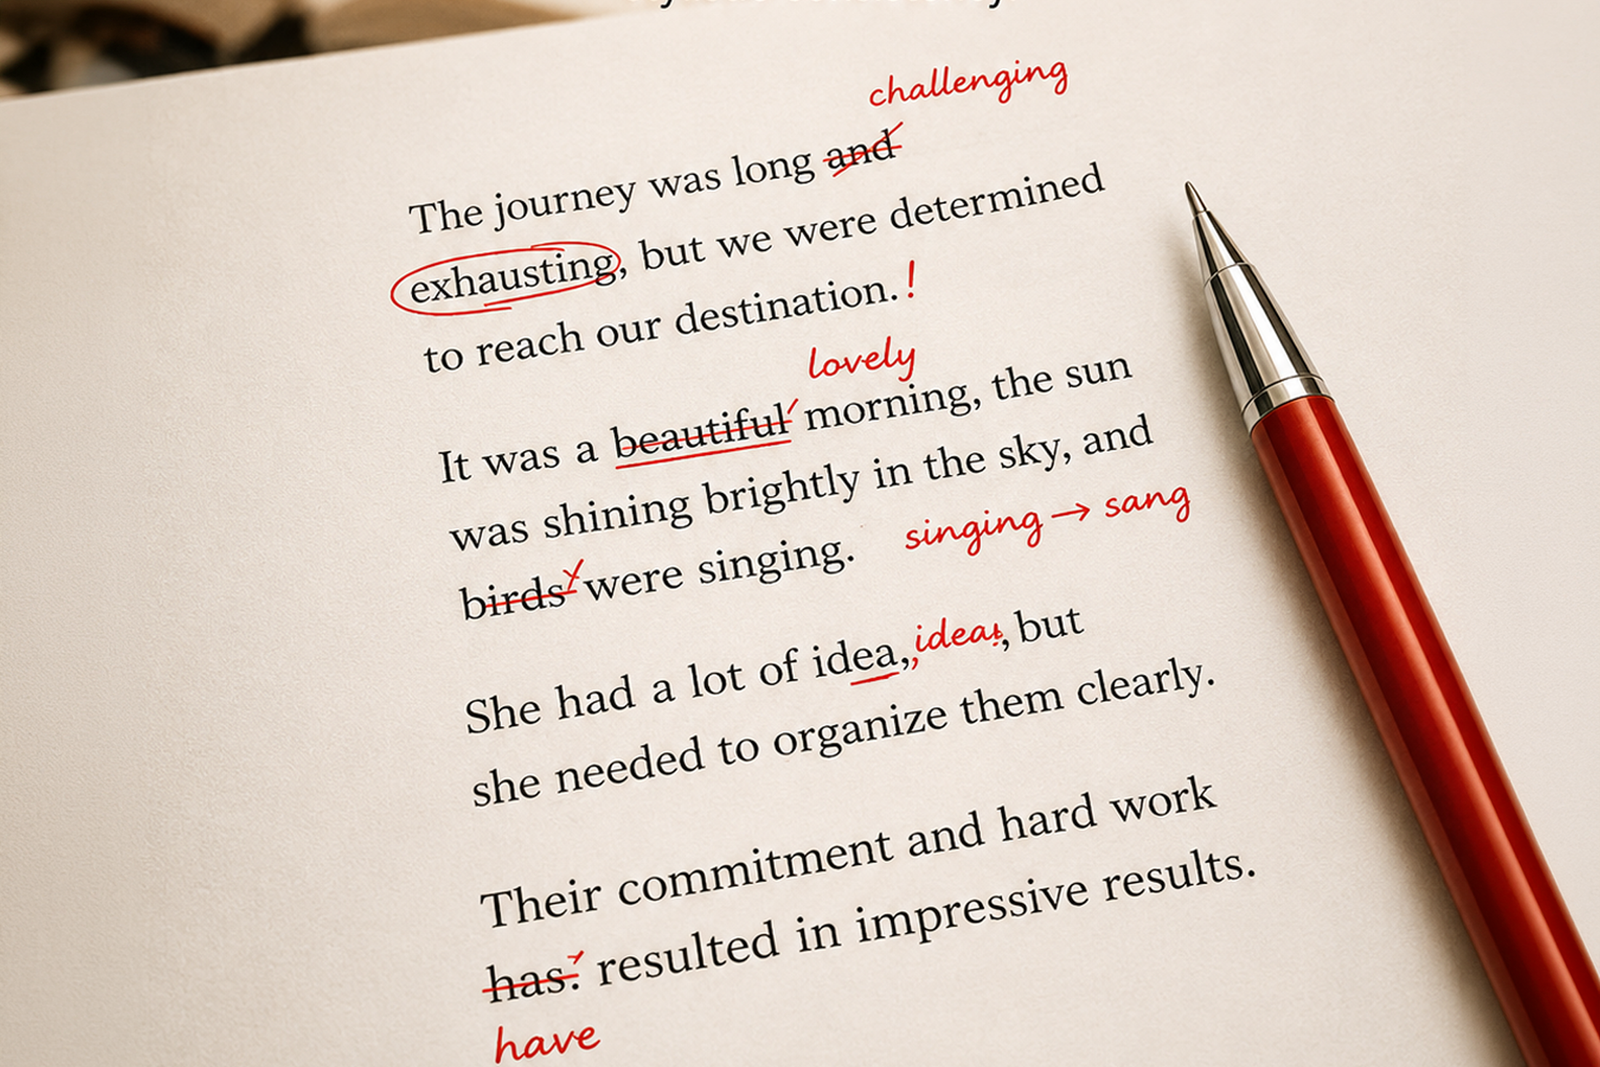 challenging
The journey was long and
exhausting, but we were determined
to reach our destination. !
lovely
It was a beautiful morning, the sun
was shining brightly in the sky, and
singing → sang
birds were singing.
She had a lot of idea, ideas, but
she needed to organize them clearly.
Their commitment and hard work
has. resulted in impressive results.
have